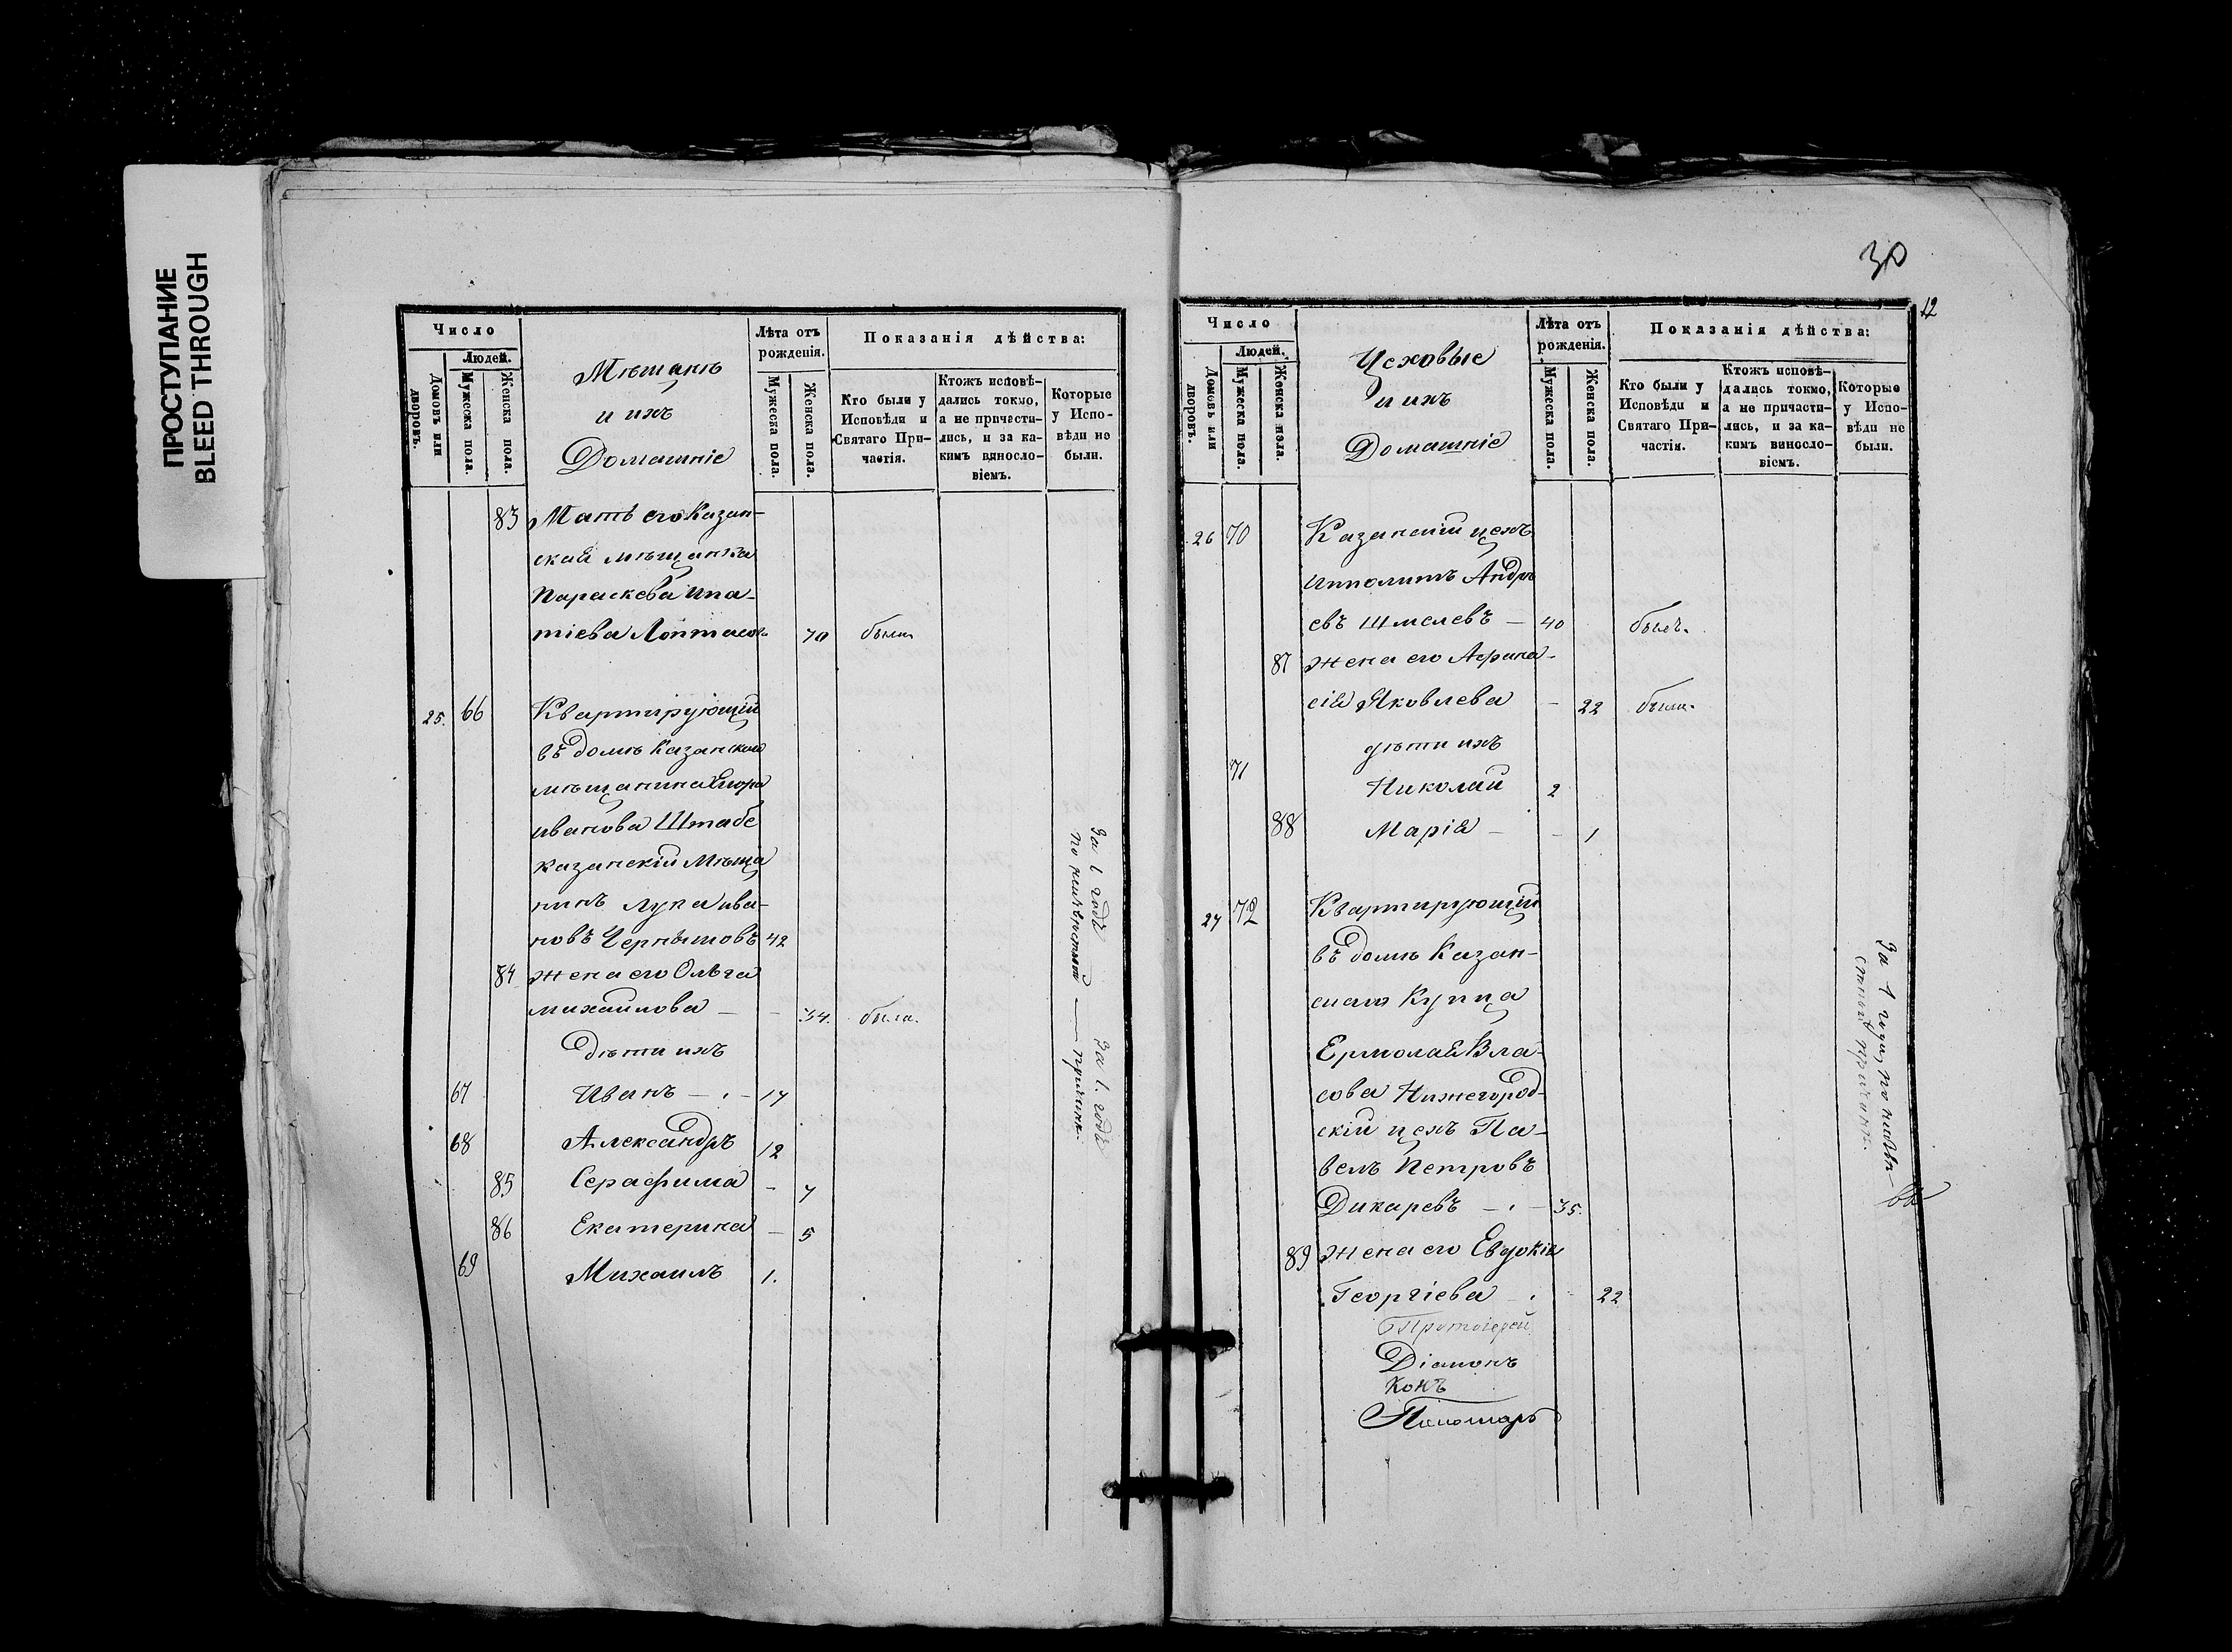 ПРОСТУПАНИЕ
BLEED THROUGH
Число
Людей.
Домовъ или дворовъ.
Мужеска пола.
Женска пола.
Мѣщанъ
и ихъ
Домашніе
Лѣта отъ
рожденія.
Мужеска пола.
Женска пола.
Показанія дѣйства:
Кто были у
Исповѣди и
Святаго При-
частія.
Ктожъ исповѣ-
дались токмо,
а не причасти-
лись, и за ка-
кимъ винosло-
віемъ.
Которые
у Испо-
вѣди не
были.
83 Мать его Казан-
ская мѣщанка
Параскева Ипа-
тіева 70 была
25. 66 Квартирующій
въ домѣ Казанскаго
мѣщанина Егора
Иванова Штабе
Казанскій Мѣща
нинъ Лука Ива-
новъ Чернышовъ 42
84 жена его Ольга
Михайлова — - 34. была.
Дѣти ихъ
67 Иванъ — 17
68 Александръ 12
85 Серафима - 7
86 Екатерина — 5
69 Михаилъ 1.
За 1. годъ
За 1. годъ
по
30
12
Число
Людей.
Домовъ или дворовъ.
Мужеска пола.
Женска пола.
Цеховые
и ихъ
Домашніе
Лѣта отъ
рожденія.
Мужеска пола.
Женска пола.
Показанія дѣйства:
Кто были у
Исповѣди и
Святаго При-
частія.
Ктожъ исповѣ-
дались токмо,
а не причасти-
лись, и за ка-
кимъ винosло-
віемъ.
Которые
у Испо-
вѣди не
были.
26 70 Казанскій цехъ
Ипполитъ Андре
евъ Шмелевъ — 40 былъ.
87 жена его Афана-
сія Яковлева - 22 была.
дѣти ихъ
71 Николай 2
88 Марія — - 1
27 72 Квартирующій
въ домѣ Казан-
скаго Купца
Ермолая Вла-
сова Нижегород-
скій цехъ Па-
велъ Петровъ
Дикаревъ — 35.
89 жена его Евдокія
Георгіева 22
Протоіерей
Діаконъ
Пономарь
За 1 годъ, по